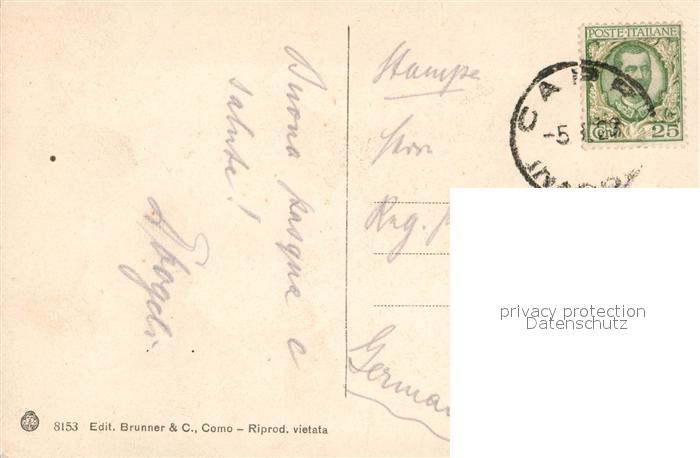 Buona pasqua e
salute!
Stampe
Herr
Reg.
German
POSTE·ITALIANE
25
CAD
-5
privacy protection
Datenschutz
8153 Edit. Brunner & C., Como – Riprod. vietata